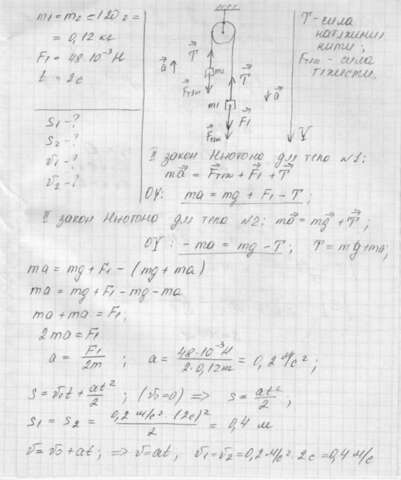 m₁ = m₂ = 120 г =
= 0,12 кг
F₁ = 48·10⁻³ Н
t = 2с
S₁ - ?
S₂ - ?
v₁ - ?
v₂ - ?
a⃗
T⃗
m₂
F⃗тяж
T⃗
m₁
F⃗₁
F⃗тяж
a⃗
Y
T - сила
натяжения
нити;
Fтяж - сила
тяжести.
II закон Ньютона для тела №1:
ma⃗ = F⃗тяж + F⃗₁ + T⃗
OY: ma = mg + F₁ - T;
II закон Ньютона для тела №2: ma⃗ = mg⃗ + T⃗;
OY: -ma = mg - T; T = mg + ma;
ma = mg + F₁ - (mg + ma)
ma = mg + F₁ - mg - ma
ma + ma = F₁;
2ma = F₁
a = F₁/2m ; a = 48·10⁻³ Н / 2·0,12 кг = 0,2 м/с²;
S = v₀t + at²/2 ; (v₀=0) => S = at²/2 ;
S₁ = S₂ = 0,2 м/с² · (2с)² / 2 = 0,4 м
v = v₀ + at; => v = at, v₁ = v₂ = 0,2 м/с² · 2с = 0,4 м/с